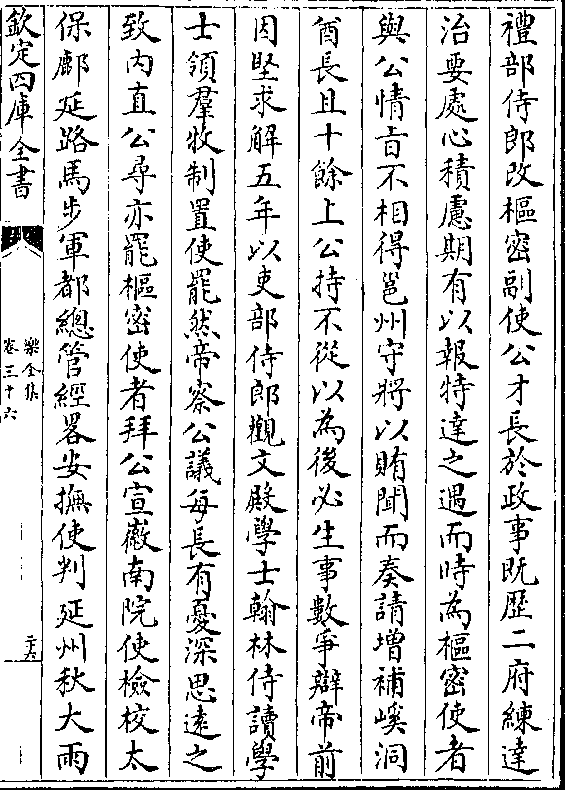 禮部侍郎改樞密副使公才長於政事既歴二府練達
治要處心積慮期有以報特達之遇而時為樞密使者
與公情㫖不相得邕州守將以賄聞而奏請增補嵠洞
酋長且十餘上公持不從以為後必生事數爭辯帝前
因堅求解五年以吏部侍郎觀文殿學士翰林侍讀學
士領羣牧制置使罷然帝察公議每長有憂深思逺之
致内直公尋亦罷樞密使者拜公宣徽南院使檢校太
保鄜延路馬步軍都總管經畧安撫使判延州秋大雨
欽定四庫全書
樂全集
卷三十六
二十六